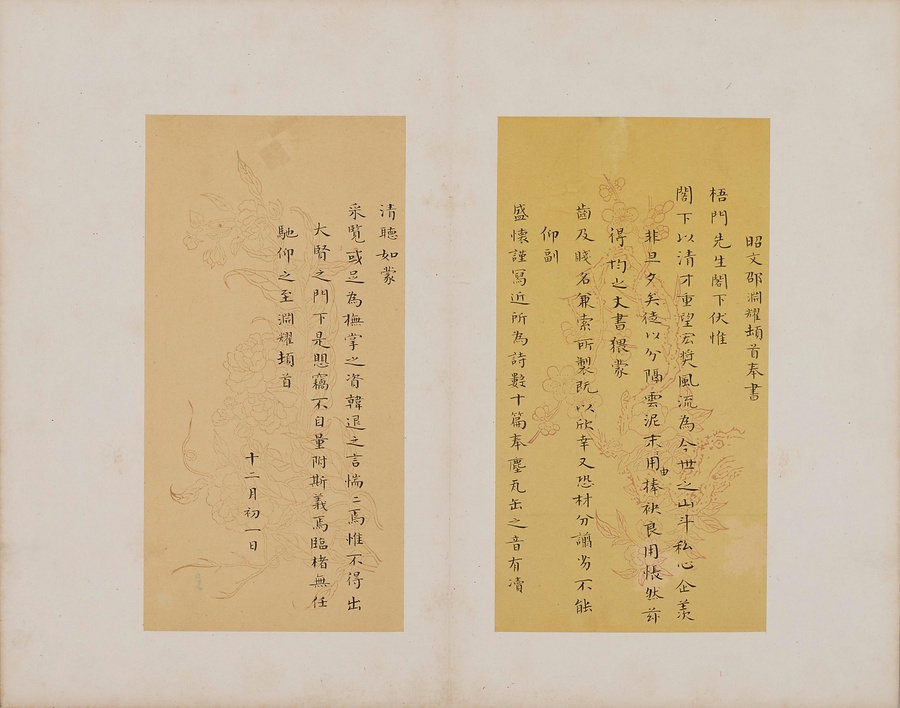 昭文邵淵耀頓首奉書
梧門先生閣下伏惟
閣下以清才重望宏奬風流為今世之山斗私心企羨
非旦夕矣徒以分隔雲泥末由捧袂良用悵然茲
得均之丈書猥蒙
齒及賤名兼索所製既以欣幸又恐材分譾劣不能
仰副
盛懷謹寫近所為詩數十篇奉塵瓦缶之音有凟
清聽如蒙
采覽或足為撫掌之資韓退之言惴二焉惟不得出
大賢之門下是思竊不自量附斯義焉臨楮無任
馳仰之至淵耀頓首
十二月初一日